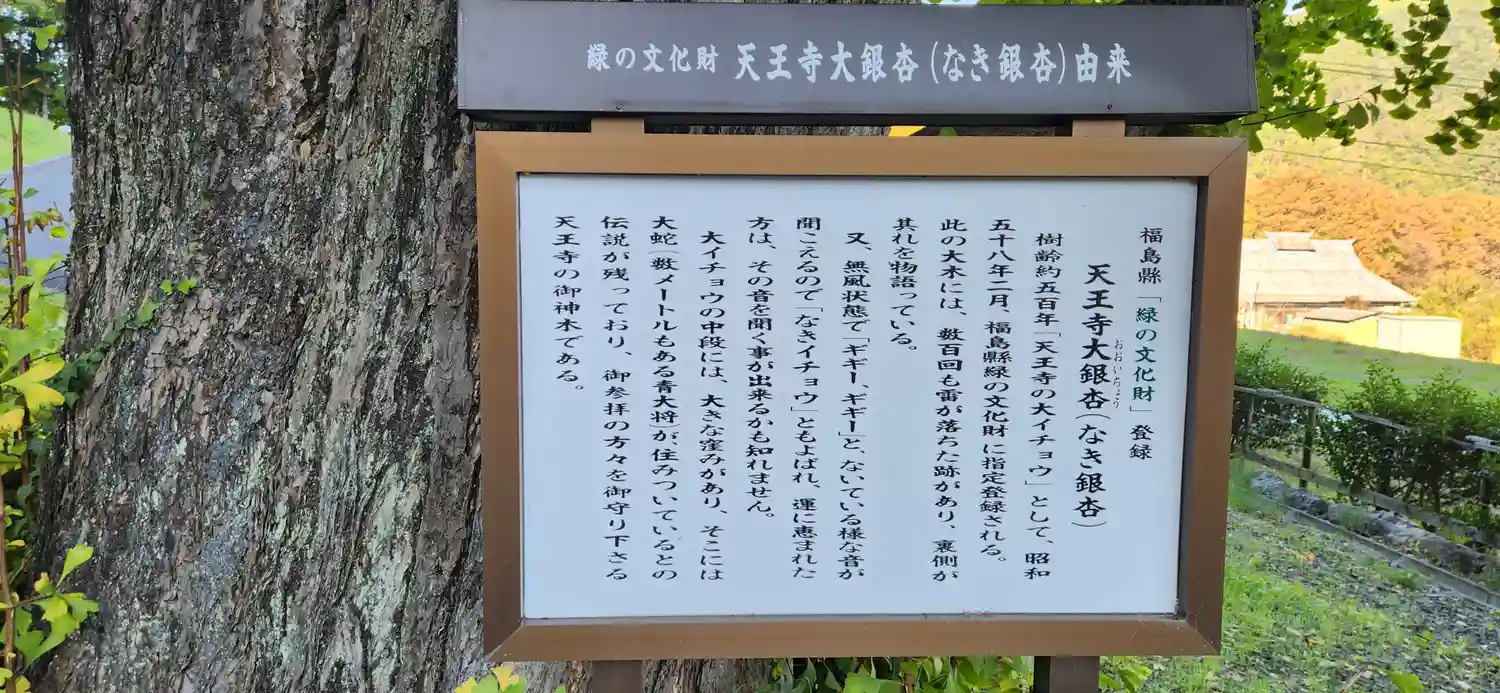 緑の文化財 天王寺大銀杏(なき銀杏)由来
福島縣「緑の文化財」登録
天王寺大銀杏(なき銀杏)
おおいちょう
樹齢約五百年「天王寺の大イチョウ」として、昭和
五十八年二月、福島縣緑の文化財に指定登録される。
此の大木には、数百回も雷が落ちた跡があり、裏側が
其れを物語っている。
又、無風状態で「ギギー、ギギー」と、ないている様な音が
聞こえるので「なきイチョウ」ともよばれ、運に恵まれた
方は、その音を聞く事が出来るかも知れません。
大イチョウの中段には、大きな窪みがあり、そこには
大蛇(数メートルもある青大将)が、住みついているとの
伝説が残っており、御参拝の方々を御守り下さる
天王寺の御神木である。